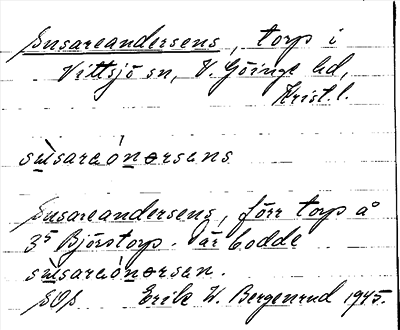 Susareandersens, torp i
Vittsjö sn, V. Göinge hd,
Krist. l.
sùsareánərsens
Susareandersens, förr torp å
3⁵ Bjärstorp. Där bodde
sùsareánərsen.
SOS Erik W. Bergenrud 1945.